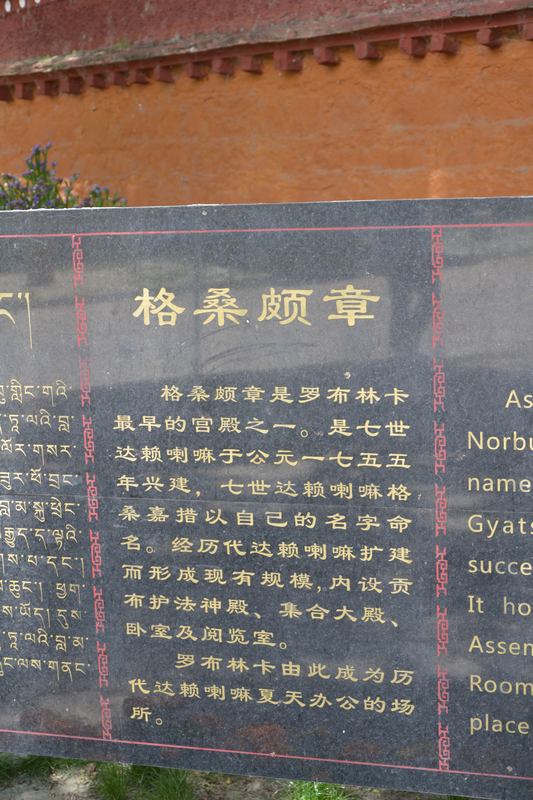 གླིང་གའི་
ཏཱ་ལའི་བླ་
ལོར་གསར་
ཟུར་ཕོ་བྲང་
བླ་མ་སྐུ་ཕྲེང་
ས་པ་དང་།
ཆུང་། ཕྱག་
ཡོད། དུས་
ཏཱ་ལའི་བླ་མ་
ལས་གནང་
格桑颇章
格桑颇章是罗布林卡
最早的宫殿之一。是七世
达赖喇嘛于公元一七五五
年兴建，七世达赖喇嘛格
桑嘉措以自己的名字命
名。经历代达赖喇嘛扩建
而形成现有规模，内设贡
布护法神殿、集合大殿、
卧室及阅览室。
罗布林卡由此成为历
代达赖喇嘛夏天办公的场
所。
As
Norbu
name
Gyats
succe
It ho
Assem
Room
place